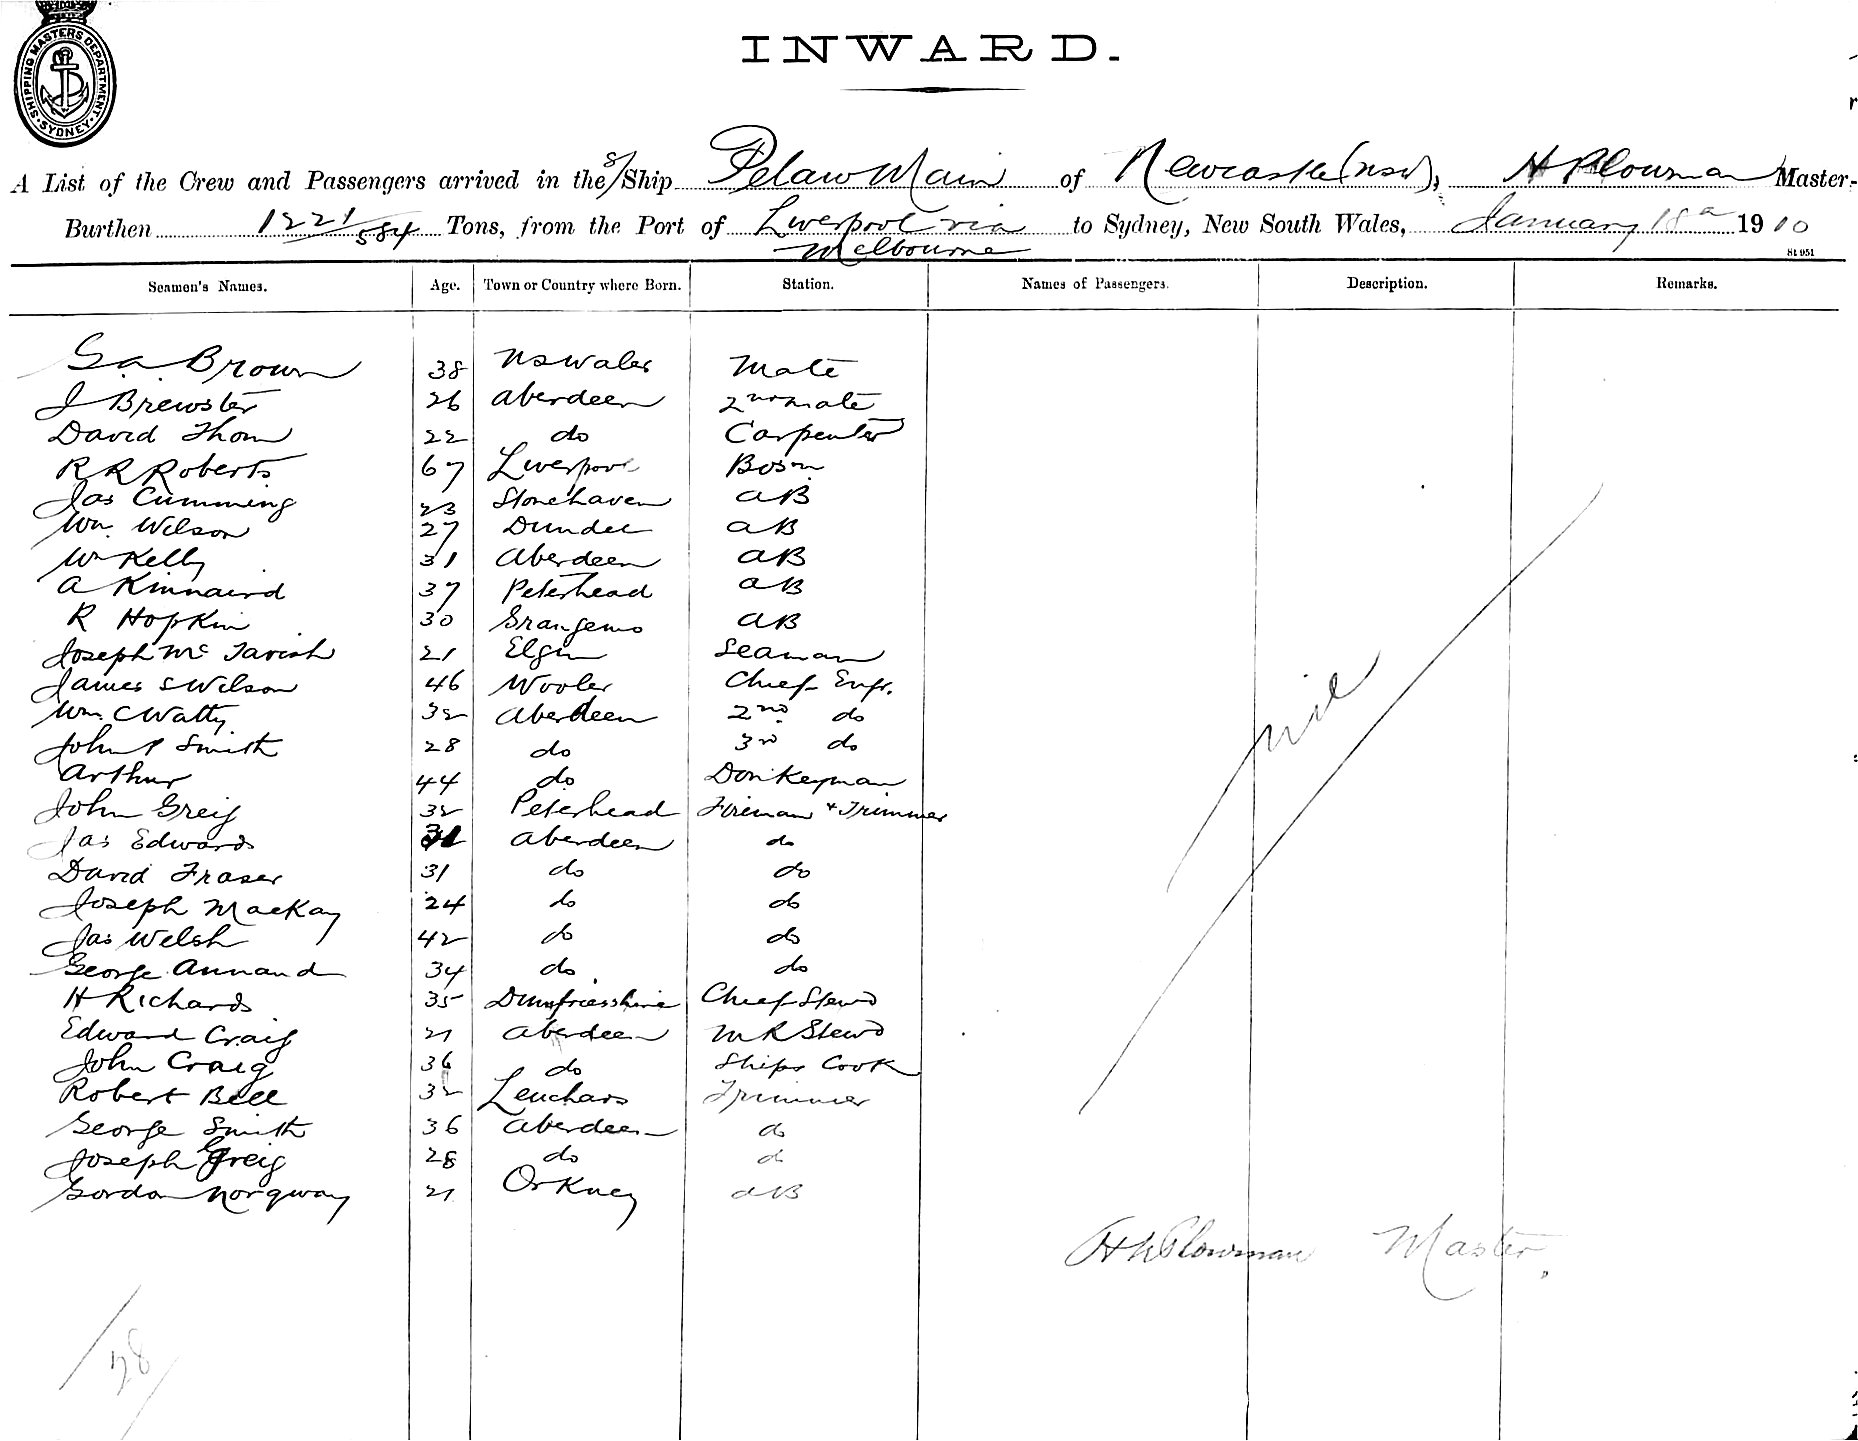 SHIPPING MASTERS DEPARTMENT. SYDNEY
INWARD.
A List of the Crew and Passengers arrived in the S/Ship Pelaw Main of Newcastle (NSW), H Plowman Master-
Burthen 1221/584 Tons, from the Port of Liverpool via Melbourne to Sydney, New South Wales, January 18th 1910
St 951
Seamen's Names. Age. Town or Country where Born. Station. Names of Passengers. Description. Remarks.
G. A. Brown 38 NSWales Mate
J Brewster 26 Aberdeen 2nd Mate
David Thom 22 do Carpenter
R R Roberts 67 Liverpool Bosn
Jas Cumming 23 Stonehaven AB
Wm. Wilson 27 Dundee AB
Wm Kelly 31 Aberdeen AB
A Kinnaird 37 Peterhead AB
R Hopkin 30 Grangemo AB
Joseph McTavish 21 Elgin Seaman
James S Wilson 46 Wooler Chief Engr.
Wm. C Watty 32 Aberdeen 2nd do
John P Smith 28 do 3rd do
Arthur 44 do Donkeyman
John Greig 32 Peterhead Fireman + Trimmer
Jas Edwards Aberdeen do
David Fraser 31 do do
Joseph MacKay 24 do do
Jas Welsh 42 do do
George Annand 34 do do
H Richards 35 Dumfriesshire Chief Stewd
Edward Craig 21 Aberdeen M R Stewd
John Craig 36 do Ships Cook
Robert Bell 32 Leuchars Trimmer
George Smith 36 Aberdeen do
Joseph Greig 28 do do
Gordon Norquay 21 Orkney AB
nil
H Plowman Master
28